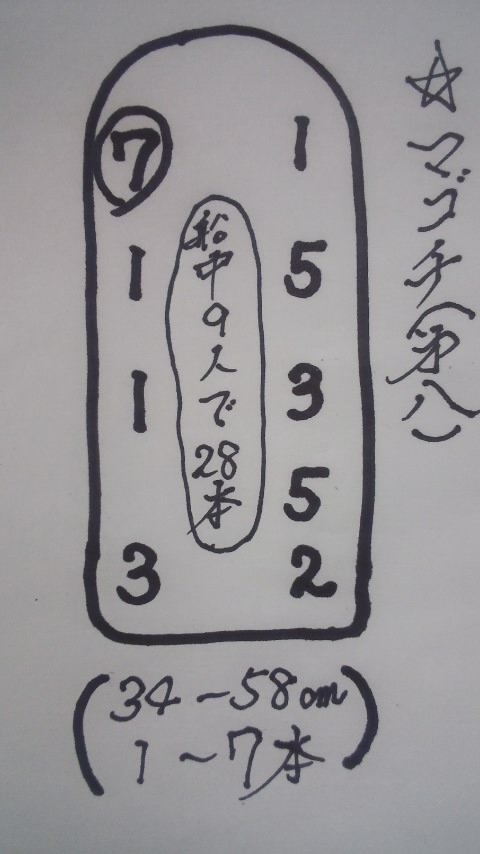 ☆マゴチ(第八)
⑦ 1
1 5
1 3
5
3 2
船中9人で28本
(34~58cm
1~7本)